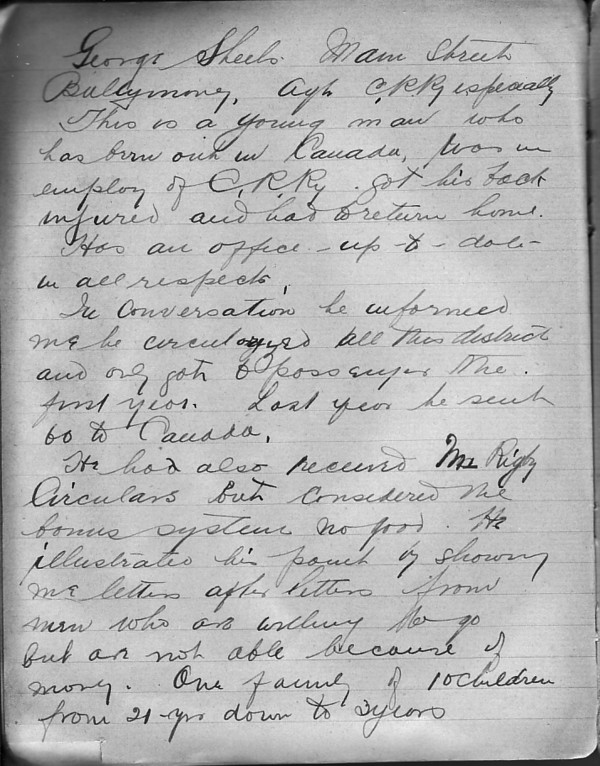 George Sheils. Main Street
Ballymoney, Agt C.P.Ry especially
This is a young man who
has been out in Canada, was in
employ of C.P.Ry. got his back
injured and had to return home.
Has an office - up - to - date -
in all respects.
In conversation he informed
me he circularized all this district
and only got 6 passenger the.
first year. Last year he sent
60 to Canada.
He had also received Mr Rigby
Circulars but considered the
bonus system no good. He
illustrated his point by showing
me letters after letters from
men who are willing to go
but are not able because of
money. One family of 10 children
from 21 yrs down to 3 years